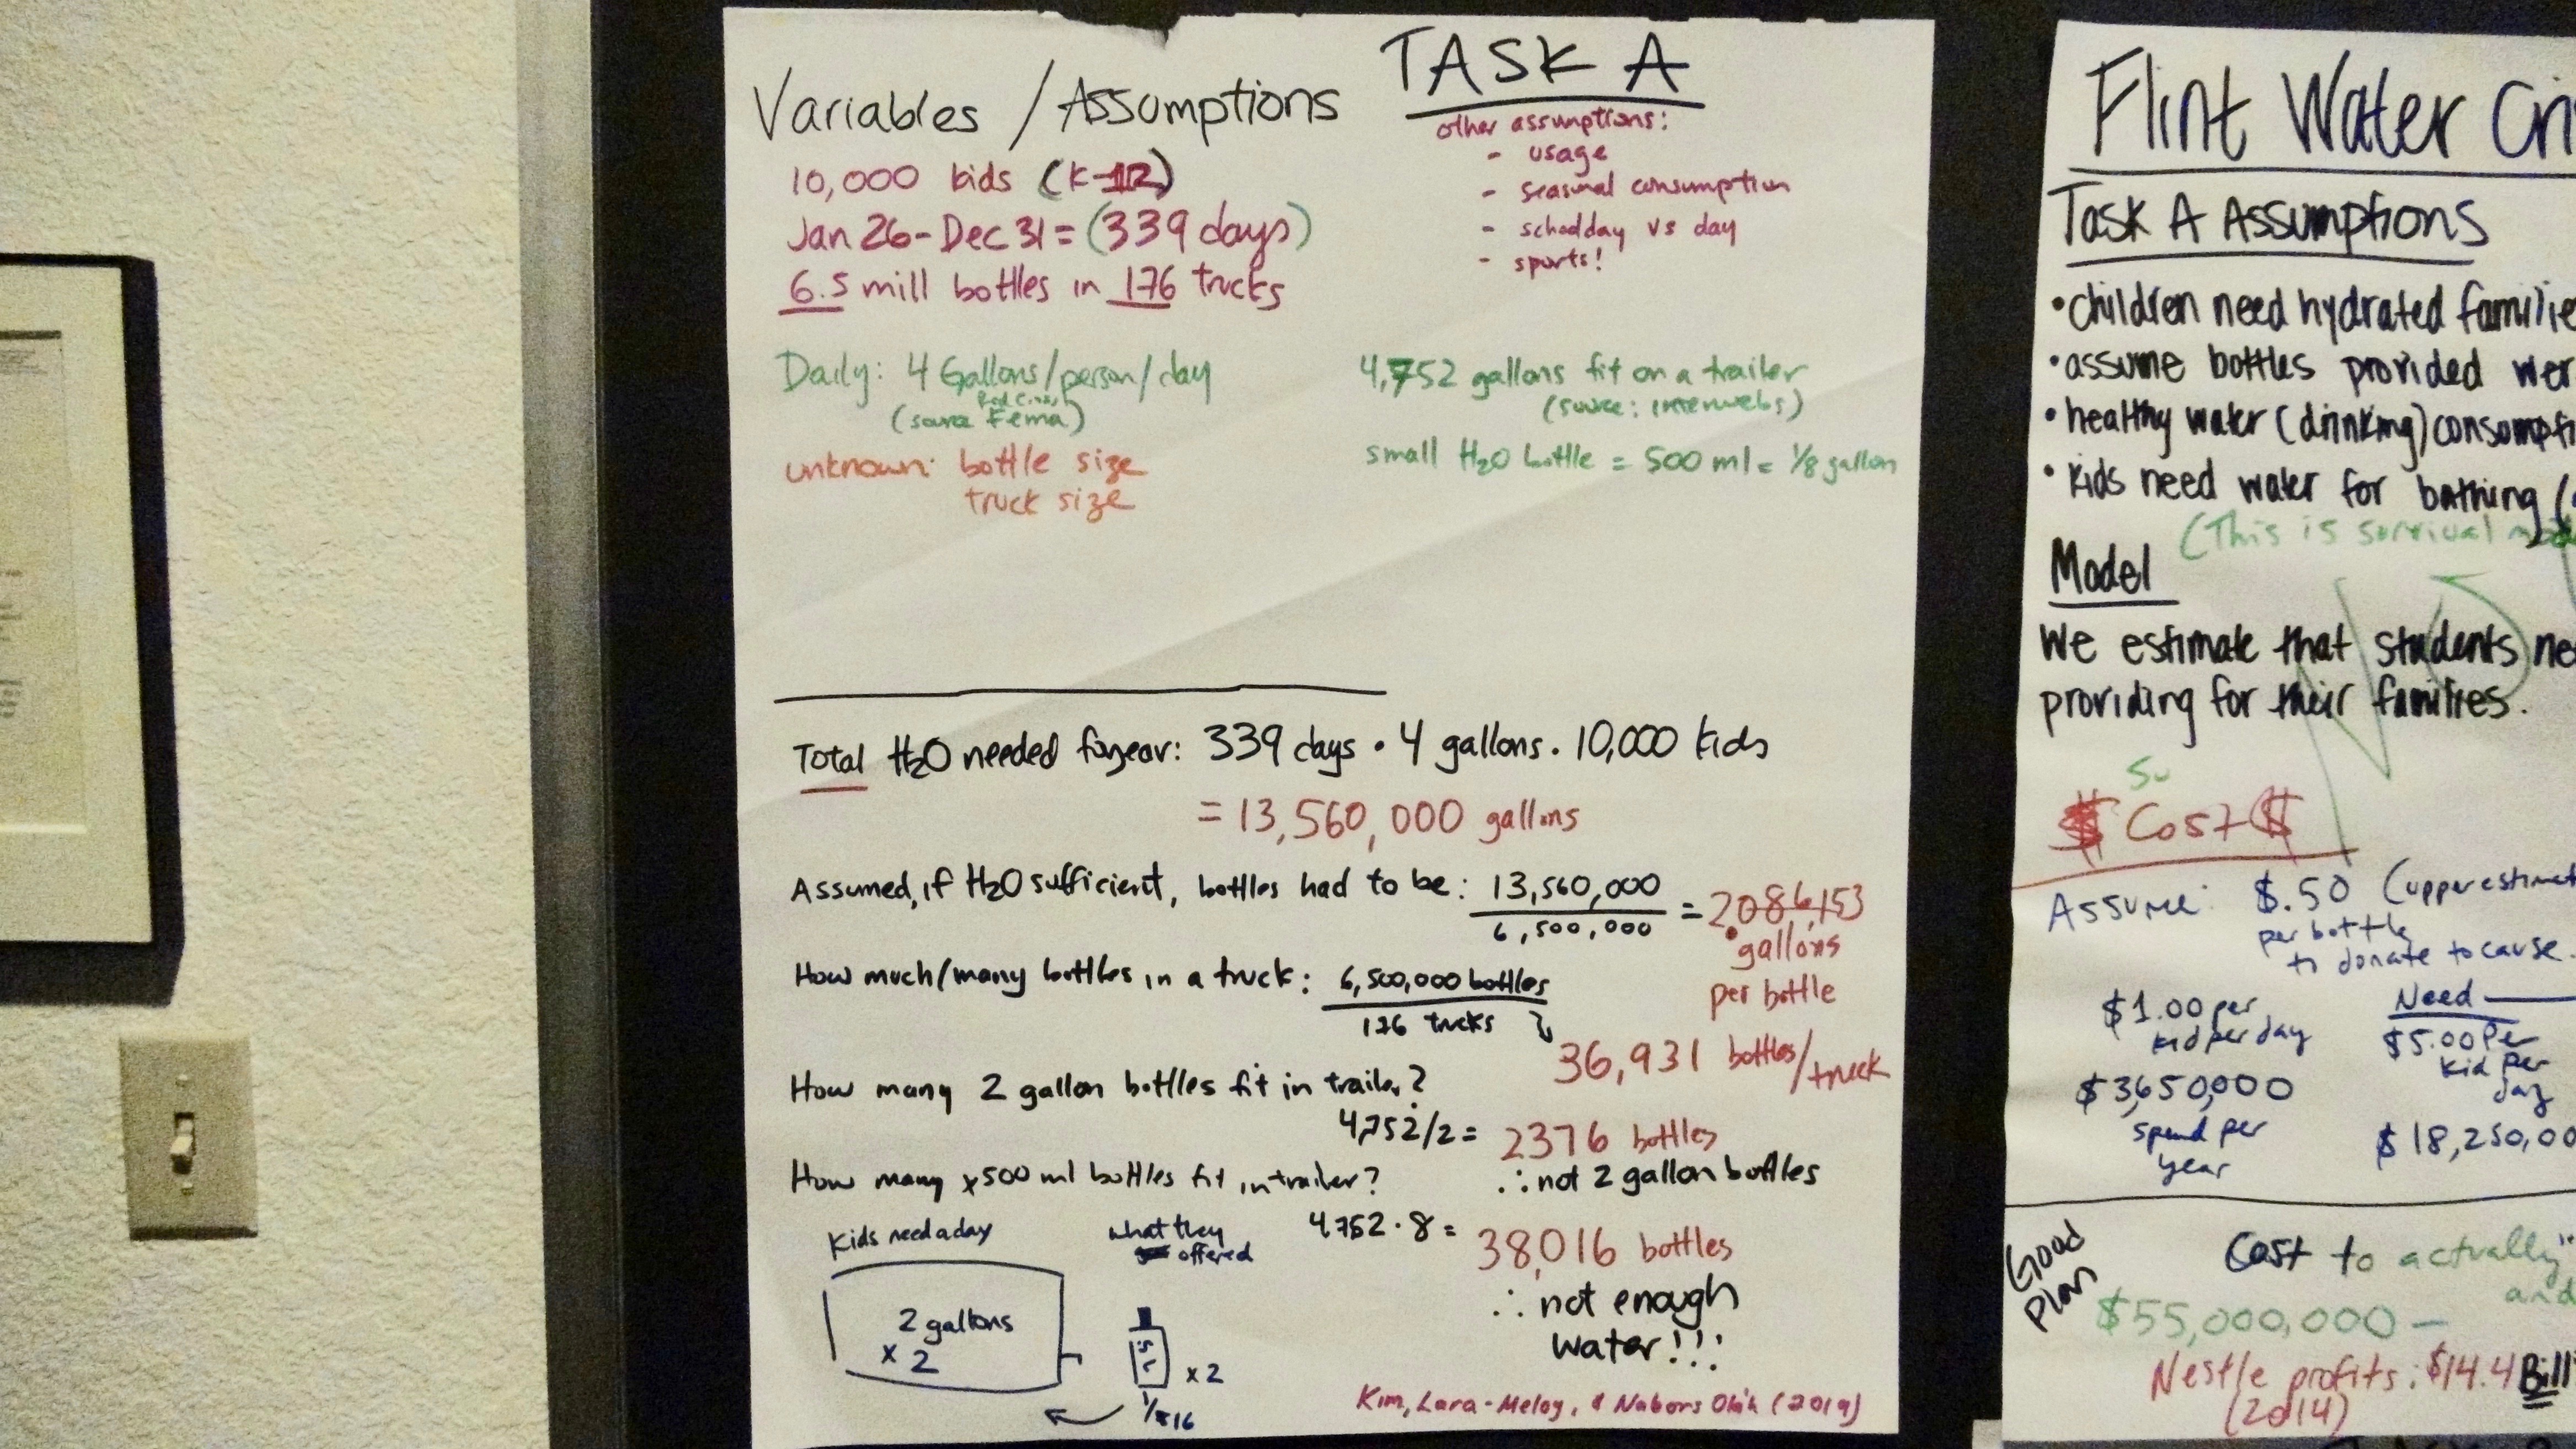 TASK A
Variables / Assumptions
10,000 kids (K-12)
Jan 26 - Dec 31 = (339 days)
6.5 mill bottles in 176 trucks
other assumptions:
- usage
- seasonal consumption
- schoolday vs day
- sports!
Daily: 4 Gallons/person/day
Red Cross
(source Fema)
unknown: bottle size
truck size
4,752 gallons fit on a trailer
(source: interwebs)
small H2O bottle = 500 ml = 1/8 gallon
Total H2O needed for year: 339 days · 4 gallons · 10,000 kids
= 13,560,000 gallons
Assumed, if H2O sufficient, bottles had to be: 13,560,000 / 6,500,000 = 2.086153
gallons
per bottle
How much/many bottles in a truck: 6,500,000 bottles / 176 trucks
36,931 bottles/truck
How many 2 gallon bottles fit in trailer?
4,752/2 = 2376 bottles
∴ not 2 gallon bottles
How many x500 ml bottles fit in trailer?
4752 · 8 = 38,016 bottles
∴ not enough
water!!!
Kids need a day
2 gallons
x 2
what they
offered
.5 L
x 2
Kim, Lara-Meloy, & Nabors Oláh (2019)
Flint Water Cri
Task A Assumptions
• children need hydrated familie
• assume bottles provided wer
• healthy water (drinking) consumpti
• kids need water for bathing (
(This is survival
Model
We estimate that students ne
providing for their families.
$ Cost $
Assume: $.50 (upper estimat
per bottle
to donate to cause.
$1.00 per
kid per day
$3,650,000
spend per
year
Need
$5.00 per
kid per
day
$18,250,00
Good
Plan
Cost to actually
and
$55,000,000 —
Nestle profits: $14.4 Bill
(2014)